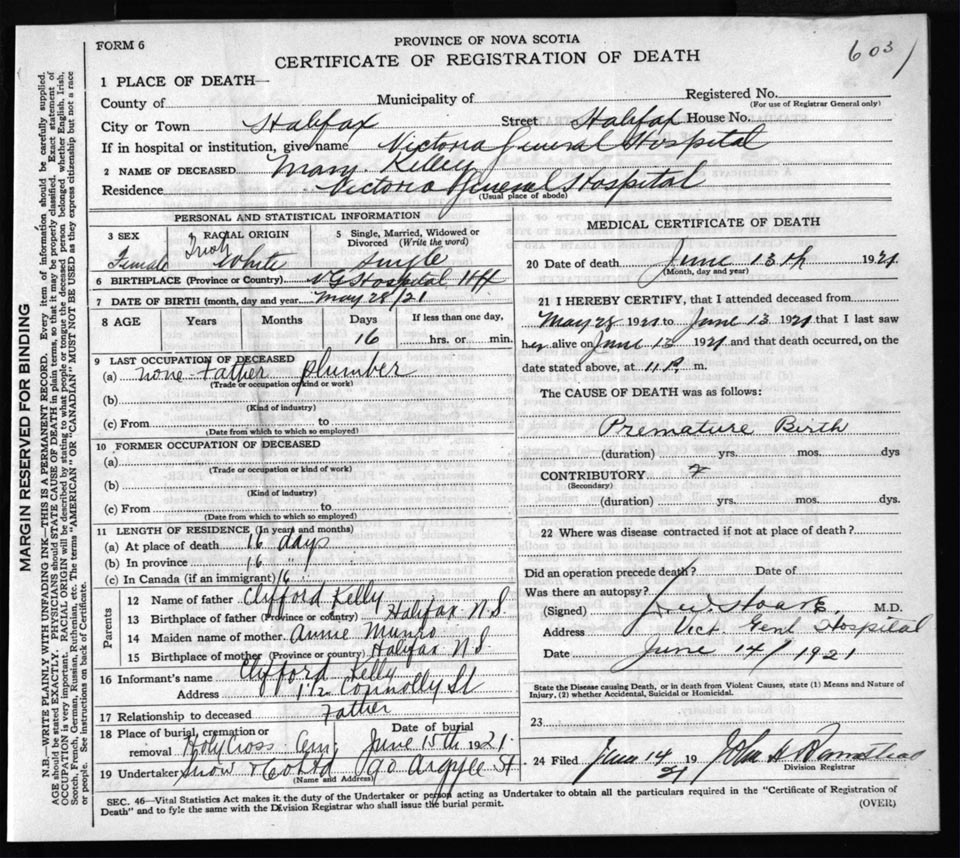 FORM 6
PROVINCE OF NOVA SCOTIA
CERTIFICATE OF REGISTRATION OF DEATH
603
1 PLACE OF DEATH—
County of Municipality of Registered No.
(For use of Registrar General only)
City or Town Halifax Street Halifax House No.
If in hospital or institution, give name Victoria General Hospital
2 NAME OF DECEASED Mary Kelley
Residence Victoria General Hospital
(Usual place of abode)
PERSONAL AND STATISTICAL INFORMATION
3 SEX
Female
4 RACIAL ORIGIN
Irish White
5 Single, Married, Widowed or Divorced (Write the word)
Single
6 BIRTHPLACE (Province or Country) V G Hospital Hfx
7 DATE OF BIRTH (month, day and year May 28/21
8 AGE Years Months Days If less than one day,
16 hrs. or min.
9 LAST OCCUPATION OF DECEASED
(a) none Father plumber
(Trade or occupation or kind or work)
(b)
(Kind of industry)
(c) From to
(Date from which to which so employed)
10 FORMER OCCUPATION OF DECEASED
(a)
(Trade or occupation or kind or work)
(b)
(Kind of industry)
(c) From to
(Date from which to which so employed)
11 LENGTH OF RESIDENCE (In years and months)
(a) At place of death 16 days
(b) In province 16
(c) In Canada (if an immigrant) 16
Parents
12 Name of father Clyfford Kelly
13 Birthplace of father (Province or country) Halifax N.S.
14 Maiden name of mother Annie Munro
15 Birthplace of mother (Province or country) Halifax N.S.
16 Informant's name Clyfford Kelly
Address Connolly St
17 Relationship to deceased Father
18 Place of burial, cremation or removal Holy Cross Cem
Date of burial June 15th 1921
19 Undertaker Snow & Co Ltd 90 Argyle St
(Name and Address)
MEDICAL CERTIFICATE OF DEATH
20 Date of death June 13th 1921
(Month, day and year)
21 I HEREBY CERTIFY, that I attended deceased from
May 28 1921 to June 13 1921 that I last saw
her alive on June 13 1921 and that death occurred, on the
date stated above, at 11 P. m.
The CAUSE OF DEATH was as follows:
Premature Birth
(duration) yrs. mos. dys
CONTRIBUTORY
(Secondary)
(duration) yrs. mos. dys.
22 Where was disease contracted if not at place of death?
Did an operation precede death? Date of
Was there an autopsy?
(Signed) M.D.
Address Vict. Genl Hospital
Date June 14/1921
State the Disease causing Death, or in death from Violent Causes, state (1) Means and Nature of Injury, (2) whether Accidental, Suicidal or Homicidal.
23
24 Filed June 14 19 21 John
Division Registrar
SEC. 46—Vital Statistics Act makes it the duty of the Undertaker or person acting as Undertaker to obtain all the particulars required in the "Certificate of Registration of
Death" and to fyle the same with the Division Registrar who shall issue the burial permit.
(OVER)
MARGIN RESERVED FOR BINDING
N.B.—WRITE PLAINLY WITH UNFADING INK—THIS IS A PERMANENT RECORD. Every item of information should be carefully supplied.
AGE should be stated EXACTLY. PHYSICIANS should STATE CAUSE OF DEATH in plain terms, so that it may be properly classified. Exact statement of
OCCUPATION is very important. RACIAL ORIGIN will be described by stating to what people or tongue the deceased person belonged whether English, Irish,
Scotch, French, German, Russian, Ruthenian, etc. The terms "AMERICAN" OR "CANADIAN" MUST NOT BE USED as they express citizenship but not a race
or people. See instructions on back of Certificate.